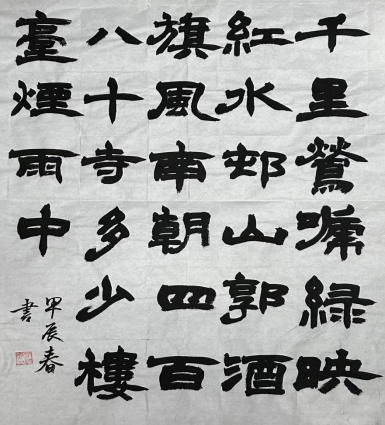 千里鶯啼綠映
紅水邨山郭酒
旗風南朝四百
八十寺多少樓
臺煙雨中
甲辰春
書